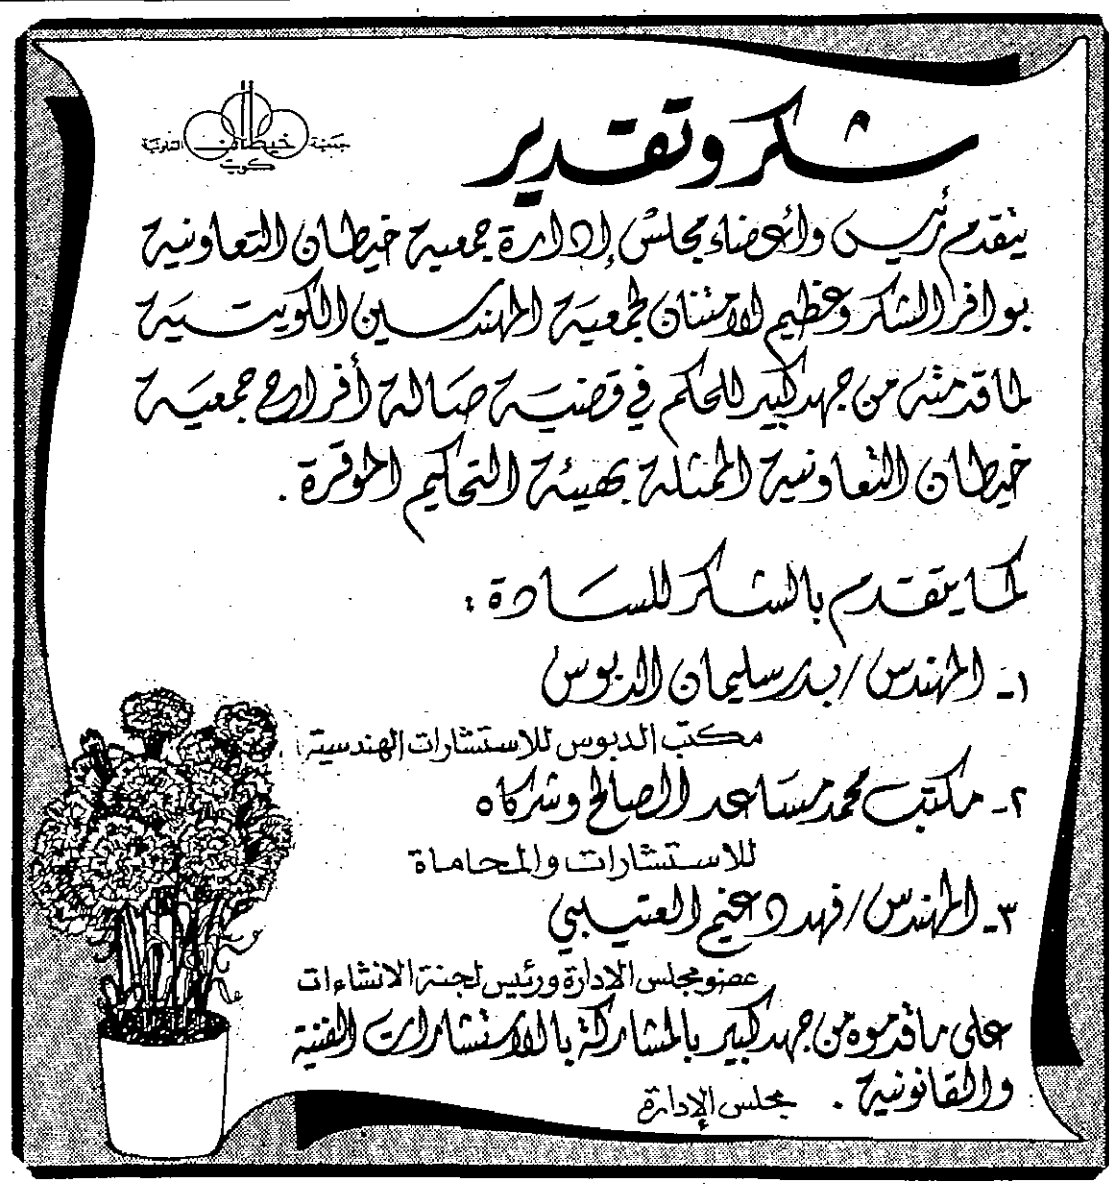 شكر وتقدير
جمعية خيطان التعاونية
كويت
يتقدم رئيس وأعضاء مجلس إدارة جمعية خيطان التعاونية
بوافر الشكر وعظيم الامتنان لجمعية المهندسين الكويتية
لما قدمته من جهد كبير للحكم في قضية صالة أفراح جمعية
خيطان التعاونية الممثلة بهيئة التحكيم الموقرة .
كما يتقدم بالشكر للسادة :
١- المهندس / بدر سليمان الدبوس
مكتب الدبوس للاستشارات الهندسية
٢- مكتب محمد مساعد الصالح وشركاه
للاستشارات والمحاماة
٣- المهندس / فهد دغيم العتيبي
عضو مجلس الادارة ورئيس لجنة الانشاءات
على ما قدموه من جهد كبير بالمشاركة بالاستشارات الفنية
والقانونية .
مجلس الإدارة